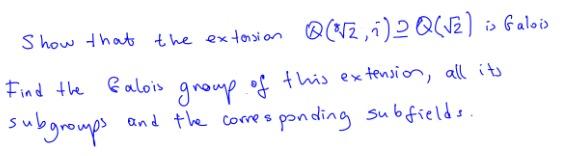 Show that the extension ℚ(∜2, i) ⊇ ℚ(√2) is Galois
Find the Galois group of this extension, all its
subgroups and the corresponding subfields.